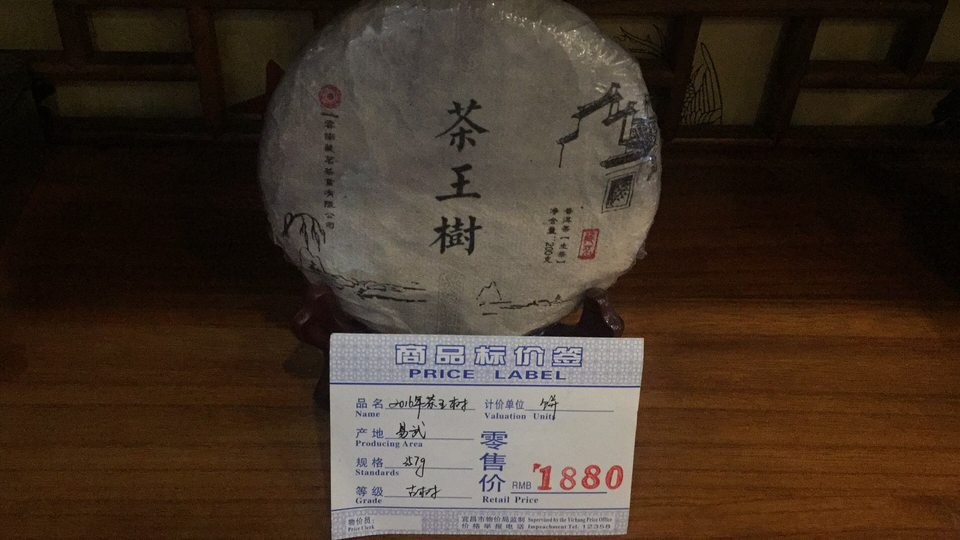 茶王樹
雲南藏茗茶業有限公司
普洱茶【生茶】
净含量：200克
商品标价签
PRICE LABEL
品名 2016年茶王树 计价单位 饼
Name Valuation Unit
产地 易武
Producing Area
规格 357g
Standards
等级 古树
Grade
零售价 RMB 1880
Retail Price
物价员：
Price Clerk
宜昌市物价局监制 Supervised by the Yichang Price Office
价格举报电话 Impeachment Tel: 12358